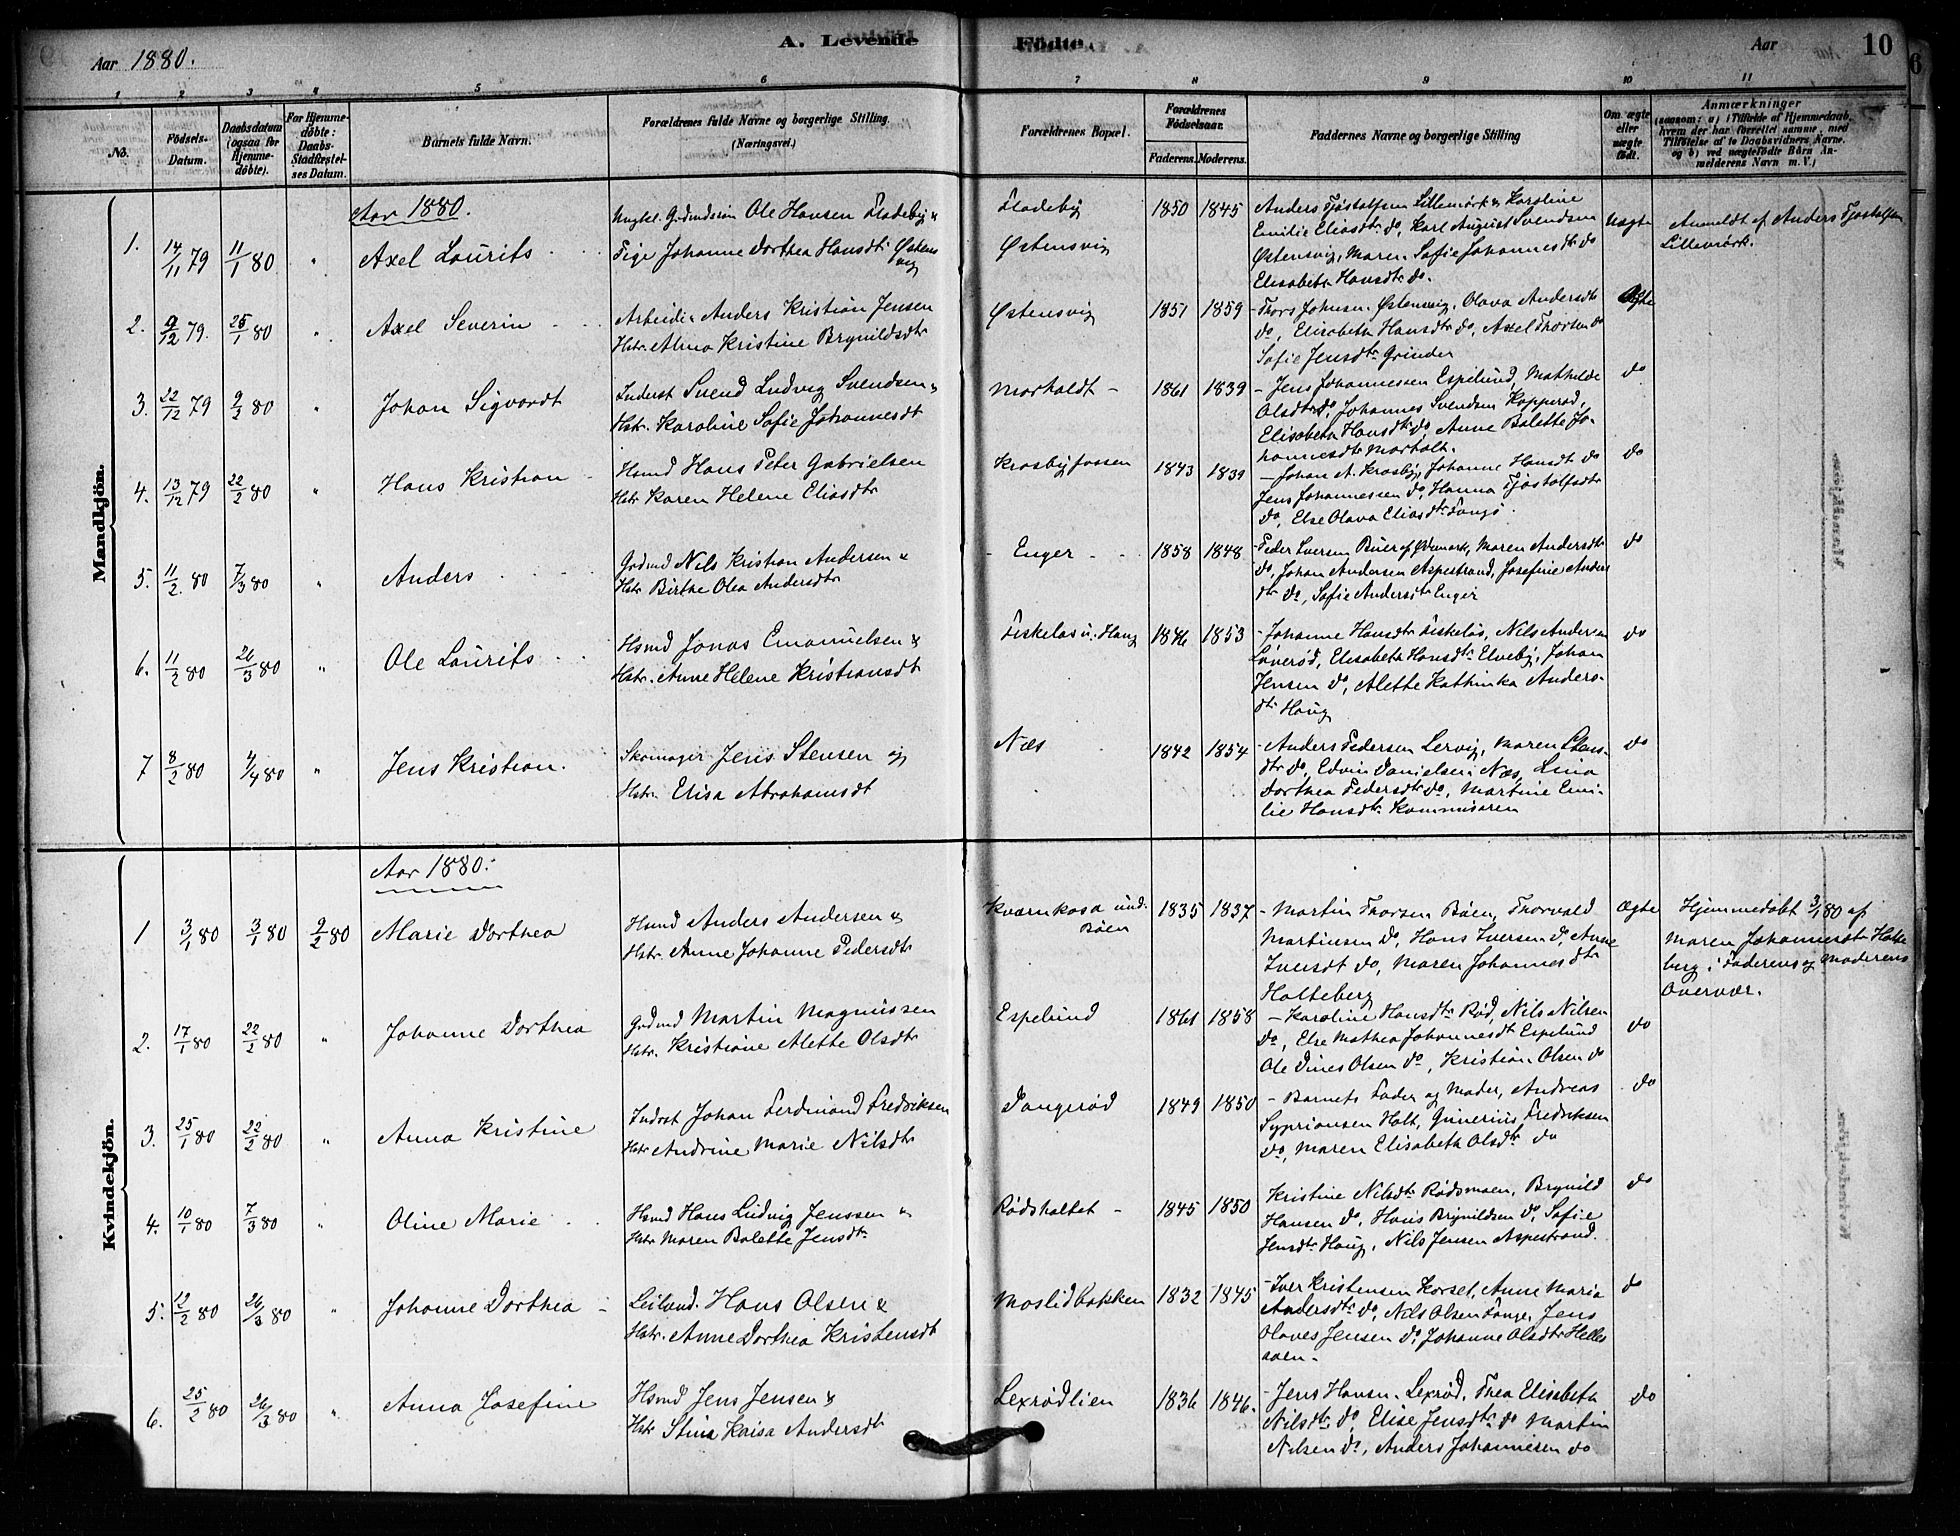 Aar 1880.
A. Levende
Födte
Aar
10
1
2
3
4
5
6
7
8
9
10
11
No.
Födsels-
Datum.
Daabsdatum
(ogsaa for
Hjemme-
döbte).
For Hjemme-
döbte:
Daabs-
Stadfæstel-
ses Datum.
Barnets fulde Navn.
Forældrenes fulde Navne og borgerlige Stilling
(Næringsvei.)
Forældrenes Bopæl.
Forældrenes
Födselsaar.
Faderens.
Moderens.
Faddernes Navne og borgerlige Stilling
Om ægte
eller
uægte
födt.
Anmærkninger
(saasom: a) i Tilfælde af Hjemmedaab,
hvem der har forrettet samme, med
Tilföielse af to Daabsvidners Navne.
og b) ved uægtefödte Börn An-
melderens Navn m. V.)
Mandkjön.
Aar 1880.
1. 14/11 79 11/1 80 " Axel Laurits
Ungkl. Grdmdsøn Ole Hansen Fladeby &
Pige Johanne Dorthea Hansdtr Østens
vig
Fladeby
Østensvig
1850 1845
Anders Fjøstolfsen Lillemørk & Karoline
Emilie Eliasdtr do, Karl August Svendsen
Østensvig, Maren Sofie Johannesdtr do
Elisabeth Hansdtr do.
Uægte
Anmeldt af Anders Fjøstolfsen
Lillemørk.
2. 9/12 79. 25/1 80 " Axel Severin
Arbeider Anders Kristian Jensen
Hstr. Alma Kristine Brynildsdtr
Østensvig
1851 1859
Thors Johnsen Østensvig, Olava Andersdtr
do, Elisabeth Hansdtr do, Axel Thorsen do
Sofie Jensdtr Grinder
Ægte
3. 22/12 79 9/2 80 " Johan Sigvardt
Inderst Svend Ludvig Svendsen &
Hstr. Karoline Sofie Johannesdt
Morholdt
1861 1839
Jens Johannessen Espelund, Mathilde
Olsdtr do, Johannes Svendsen Kopperød,
Elisabeth Hansdtr do, Anne Bolette Jo-
hannesdtr Morholt.
do
4. 13/12 79 22/2 80 " Hans Kristian
Hsmd Hans Peter Gabrielsen
Hstr Karen Helene Eliasdtr
Krosbyfossen
1843 1839
Johan A. Krosby, Johanne Hansdt do
Jens Johannessen do, Hanna Fjøstolfsdtr
do, Else Olava Eliasdtr Tangö.
do
5. 11/2 80 7/3 80 " Anders
Grdmd Nils Kristian Andersen &
Hstr Birthe Olea Andersdtr
Enger
1858 1848
Peder Iversen Buer af Ødemark, Maren Andersdtr
do, Johan Andersen Aspestrand, Josefine Anders
dtr do, Sofie Andersdtr Enger
do
6. 11/2 80 26/3 80 " Ole Laurits
Hsmd Jonas Emanuelsen &
Hstr. Anne Helene Kristiansdt
Fiskeløs u. Haug
1846 1853
Johanne Hansdtr Fiskeløs, Nils Andersen
Løverød, Elisabeth Hansdtr Elveby, Johan
Jensen do, Alette Kathinka Anders-
dtr Haug
do
7 8/2 80 4/4 80 " Jens Kristian.
Skomager Jens Stensen og
Hstr. Elisa Abrahamsdt
Næs
1842 1854
Anders Pedersen Lervig, Maren Stens-
dtr do, Edvin Danielsen Næs, Lina
Dorthea Pedersdtr do, Martine Emi-
lie Hansdtr Kommisæren
do
Kvindekjön.
Aar 1880.
1 3/1 80 3/1 80 9/2 80 Marie Dorthea
Hsmd Anders Andersen &
Hstr. Anne Johanne Pedersdtr
Kværnkasa und.
Bøen
1835 1837
Martin Thorsen Bøen, Thorvald
Martinsen do, Hans Iversen do, Anne
Iversdt do, Maren Johannesdtr
Holteberg
Ægte
Hjemmedøbt 3/1 80 af
Maren Johannesdtr Holte
berg i Faderens og Moderens
Overvær.
2. 17/1 80 22/2 80 " Johanne Dorthea
Grdmd Martin Magnussen
Hstr. Kristiane Alette Olsdtr
Espelund
1861 1858
Karoline Hansdtr Rød, Nils Nilsen
do, Else Mathea Johannesdt Espelund
Ole Dines Olsen do, Kristian Olsen do
do
3. 25/1 80 22/2 80 " Anna Kristine
Inderst Johan Ferdinand Fredriksen
Hstr Andrine Marie Nilsdtr
Tangerød
1849 1850
Barnets Fader og Moder, Andreas
Syprianssen Holt, Gunerius Fredriksen
do, Maren Elisabeth Olsdtr do
do
4. 10/1 80 7/3 80 " Oline Marie
Hsmd Hans Ludvig Jenssen &
Hstr Maren Bolette Jensdtr
Rødsholtet
1845 1850
Kristine Nilsdtr Rødsmoen, Brynild
Hansen do, Hans Brynildsen do, Sofie
Jensdtr Haug, Nils Jensen Aspestrand.
do
5. 12/2 80 26/3 80 " Johanne Dorthea
Leilænd. Hans Olsen &
Hstr. Anne Dorthea Kristensdt
Moslidbakken
1832 1845
Iver Kristensen Korset, Anne Maria
Andersdtr do, Nils Olsen Tange, Jens
Olaves Jensen do, Johanne Olsdtr Helle
saen.
do
6. 25/2 80 26/3 80 " Anna Josefine
Hsmd Jens Jensen &
Hstr Stina Kaisa Andersdtr
Lexrødlien
1836 1846.
Jens Hansen Lexrød, Thea Elisabeth
Nilsdtr do, Elise Jensdtr do Martin
Nilsen do, Anders Johannesen do
do